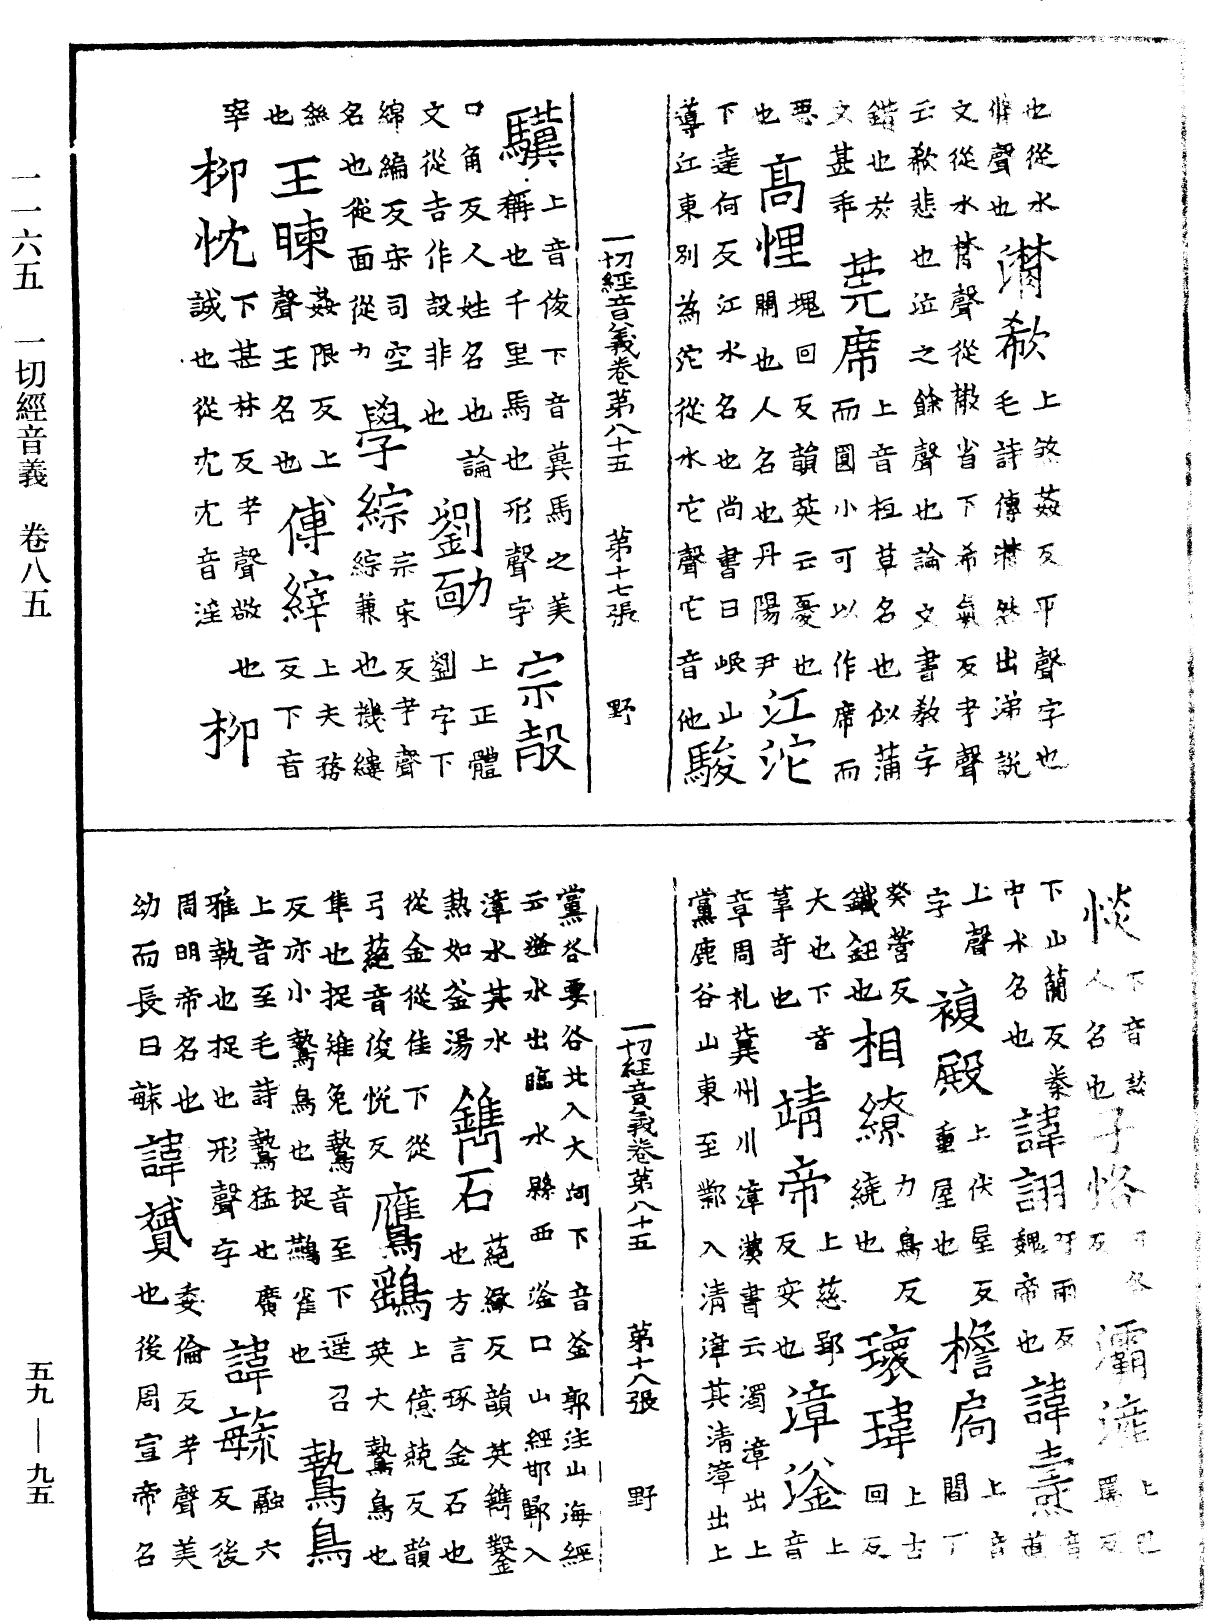 也從水
㡿聲也
潸欷
上煞姦反平聲字也
毛詩傳潸然出涕說
文從水㪚聲從㪚省下希氣反字聲
云欷悲也泣之餘聲也論文書敎字
錯也於
文甚乖
莞席
上音桓草名也似蒲
而圓小可以作席而
悪
也
高悝
塊回反韻英云憂也
開也人名也丹陽尹
江沱
下達何反江水名也尚書曰岷山
導江東別為沱從水它聲它音他
駿
一切經音義卷第八十五 第十七張 野
驥
上音俊下音冀馬之美
稱也千里馬也形聲字
宗㱿
上正體
口角反人姓名也論
文從吉作㱿非也
劉勔
劉字下
綿編反宋司空
名也從面從力
學綜
宗宋反字聲
綜兼也機縷
絲
也
王暕
姦限反上
聲王王名也
傅縡
上夫務
反下音
宰
柳忱
下甚林反字聲敬也
誠也從冘冘音淫
柳
惔
下音談
人名也
子恪
反
灞滻
上
下山蕳反秦
中水名也
諱詡
反
魏帝也
諱燾
音道
上聲
字
複殿
上伏屋反
重屋也
檐扃
上音
閻丁
癸營反
鐵鈕也
相繚
力鳥反
繞也
瓌瑋
上古
回反
大也下音
葦奇也
靖帝
上慈郢
反安也
漳滏
上
音
章周礼冀州川漳漢書云濁漳出上
黨鹿谷山東至鄴入清漳其清漳出上
一切經音義卷第八十五 第十八張 野
黨谷要谷北入大河下音釜郭注山海經
云滏水出臨水縣西滏口山經邯鄲入
漳水其水
熱如釜湯
鐫石
蕝緣反韻英鐫鏨
也方言琢金石也
從金從隹下從
弓蕝音俊悅反
鷹鷂
上億兢反韻
英大鷙鳥也
隼也捉雉兔鷙音至下遥召
反亦小鷙鳥也捉鷃雀也
鷙鳥
上音至毛詩鷙猛也廣
雅執也捉也形聲字
諱毓
融六
反後
周明帝名也
幼而長曰毓
諱贇
委倫反字聲美
也後周宣帝名
一一六五 一切經音義 卷八五
五九—九五